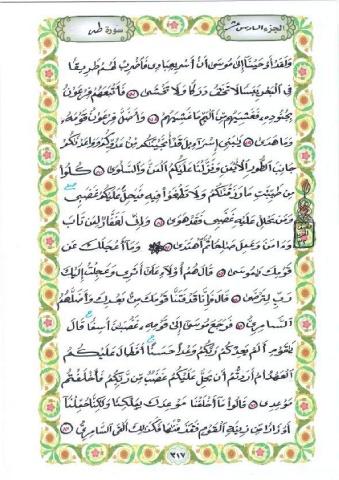 الجزء السادس عشر
سورة طه
ولقد أوحينا إلى موسى أن أسر بعبادي فاضرب لهم طريقا
في البحر يبسا لا تخف دركا ولا تخشى ٧٧ فأتبعهم فرعون
بجنوده فغشيهم من اليم ما غشيهم ٧٨ وأضل فرعون قومه
وما هدى ٧٩ يبني إسرءيل قد أنجينكم من عدوكم وواعدنكم
جانب الطور الأيمن ونزلنا عليكم المن والسلوى ٨٠ كلوا
من طيبت ما رزقنكم ولا تطغوا فيه فيحل عليكم غضبي
ومن يحلل عليه غضبي فقد هوى ٨١ وإني لغفار لمن تاب
وءامن وعمل صلحا ثم اهتدى ٨٢ وما أعجلك عن
قومك يموسى ٨٣ قال هم أولاء على أثري وعجلت إليك
رب لترضى ٨٤ قال فإنا قد فتنا قومك من بعدك وأضلهم
السامري ٨٥ فرجع موسى إلى قومه غضبن أسفا قال
يقوم ألم يعدكم ربكم وعدا حسنا أفطال عليكم
العهد أم أردتم أن يحل عليكم غضب من ربكم فأخلفتم
موعدي ٨٦ قالوا ما أخلفنا موعدك بملكنا ولكنا حملنا
أوزارا من زينة القوم فقذفنها فكذلك ألقى السامري ٨٧
٣١٧